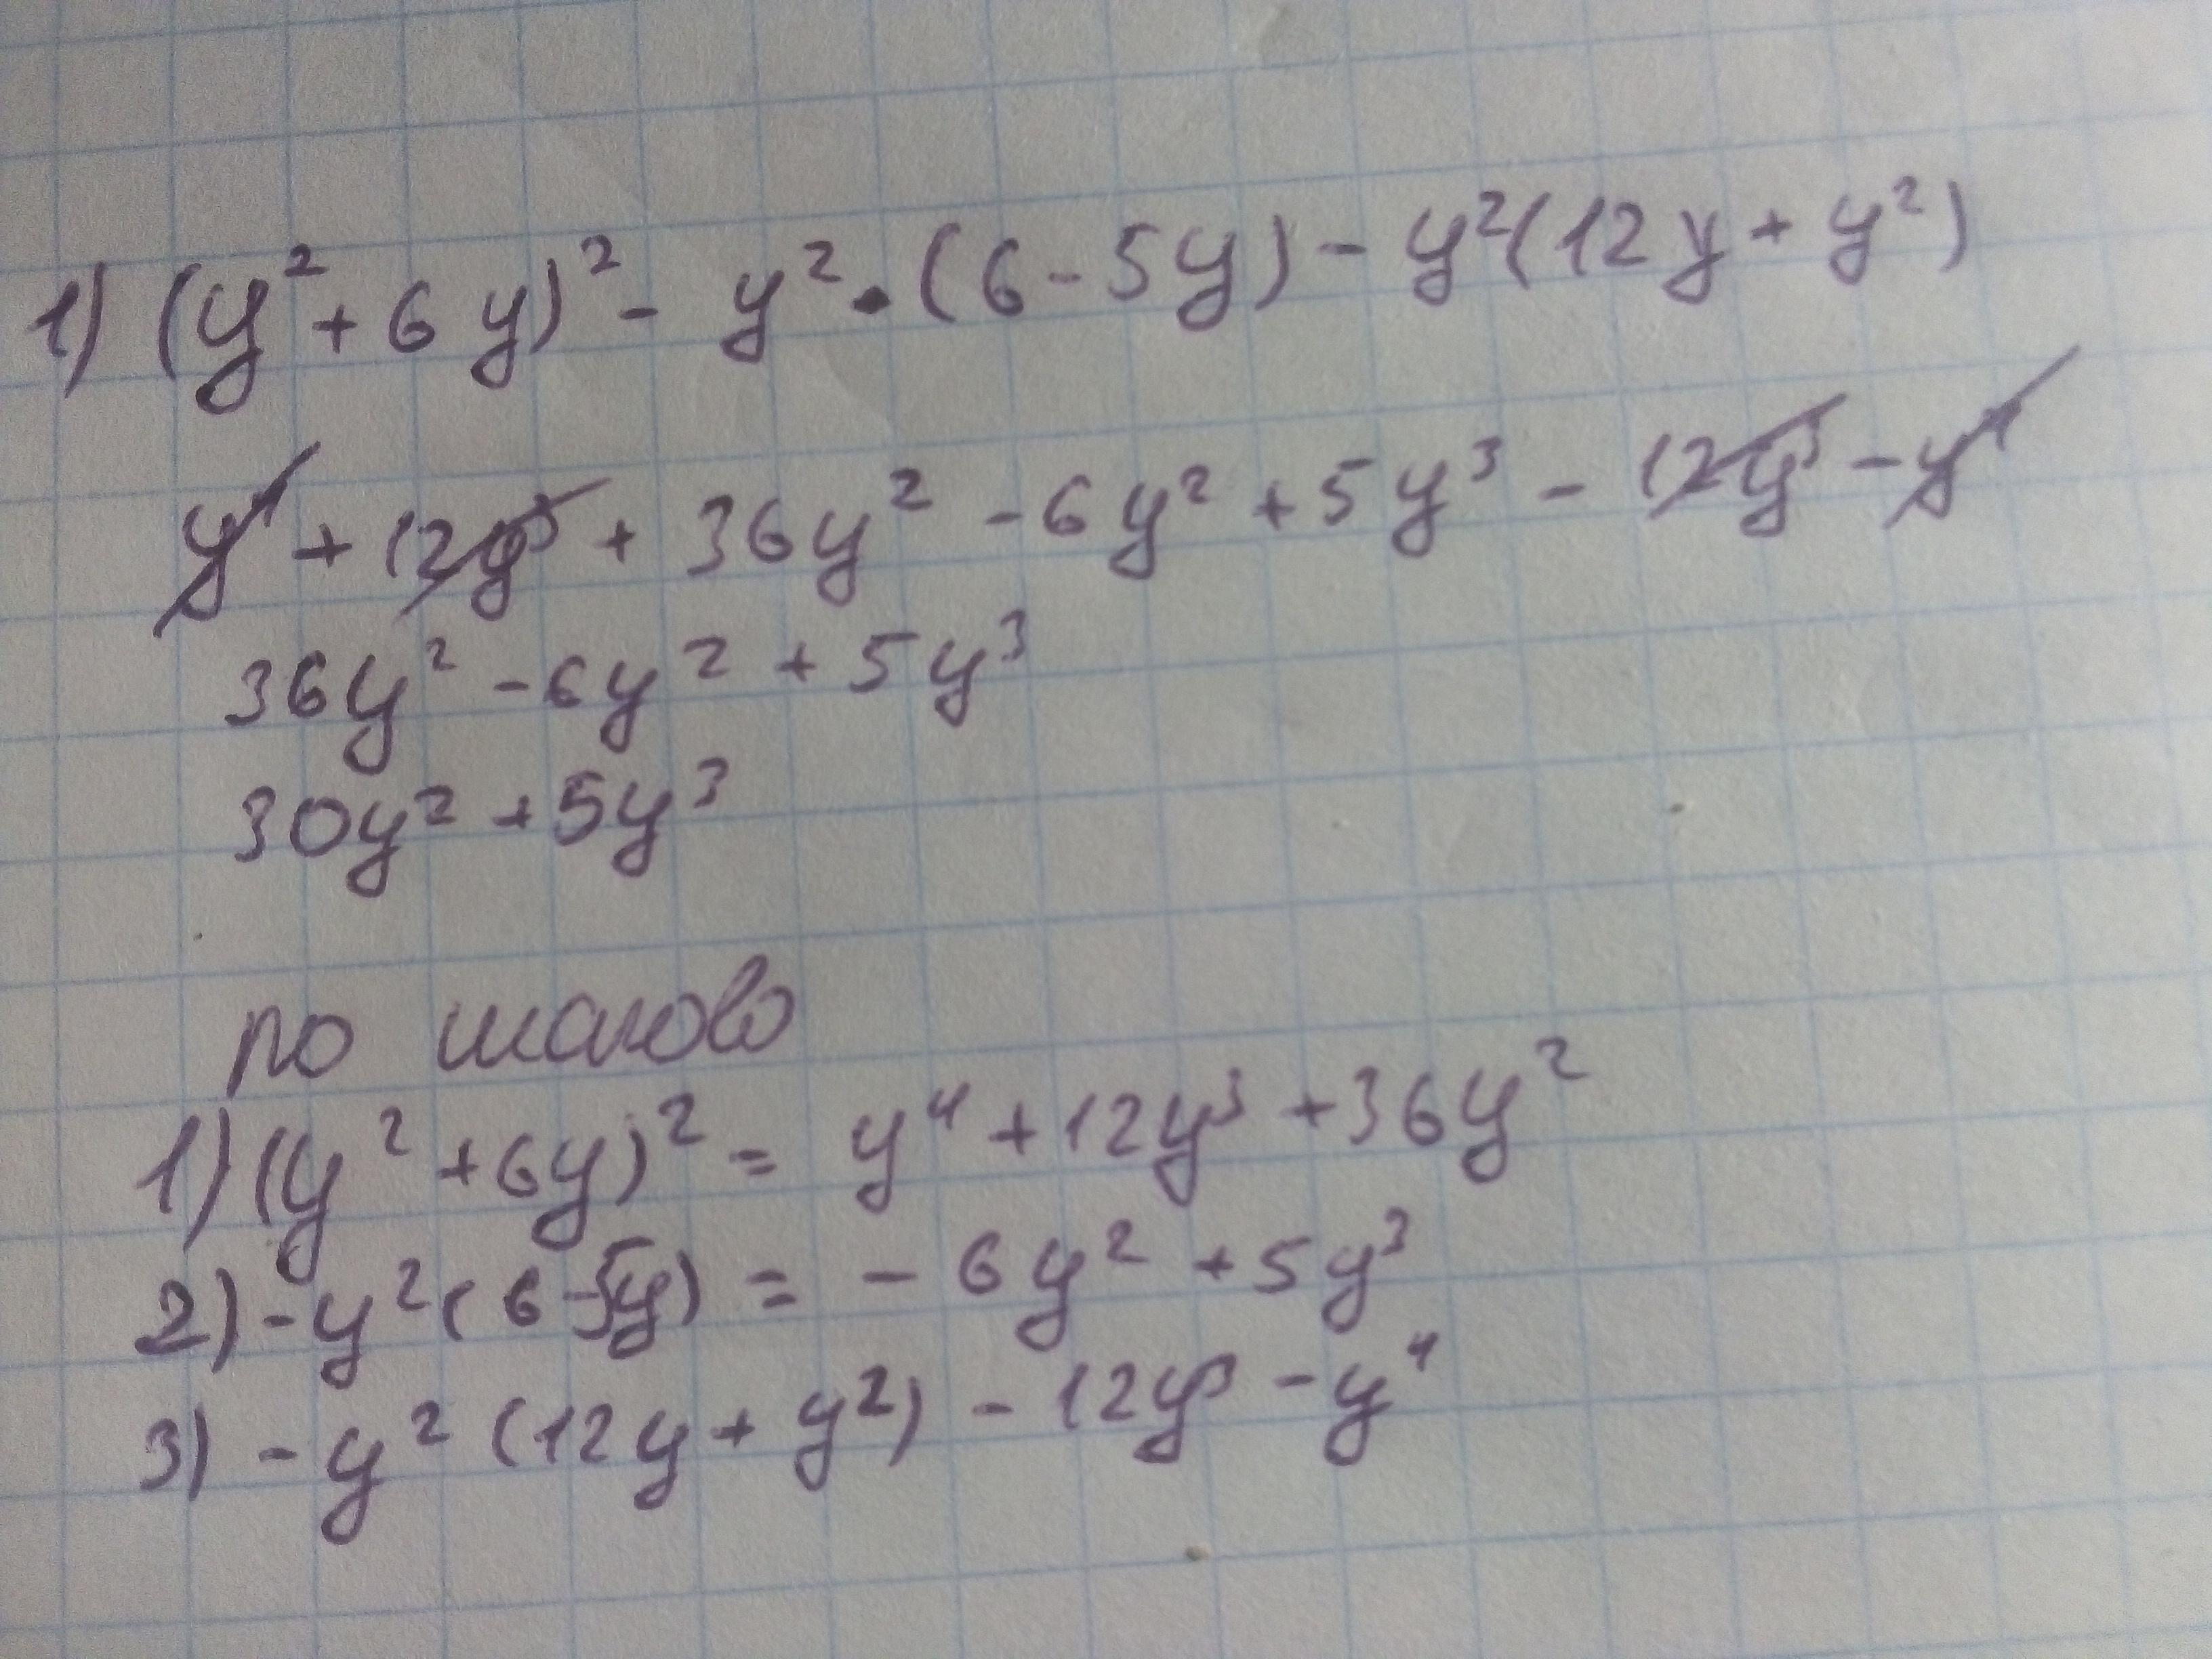 1) (y² + 6y)² - y² · (6 - 5y) - y²(12y + y²)
y⁴ + 12y³ + 36y² - 6y² + 5y³ - 12y³ - y⁴
36y² - 6y² + 5y³
30y² + 5y³
по шагово
1) (y² + 6y)² = y⁴ + 12y³ + 36y²
2) - y² (6 - 5y) = - 6y² + 5y³
3) - y² (12y + y²) - 12y³ - y⁴